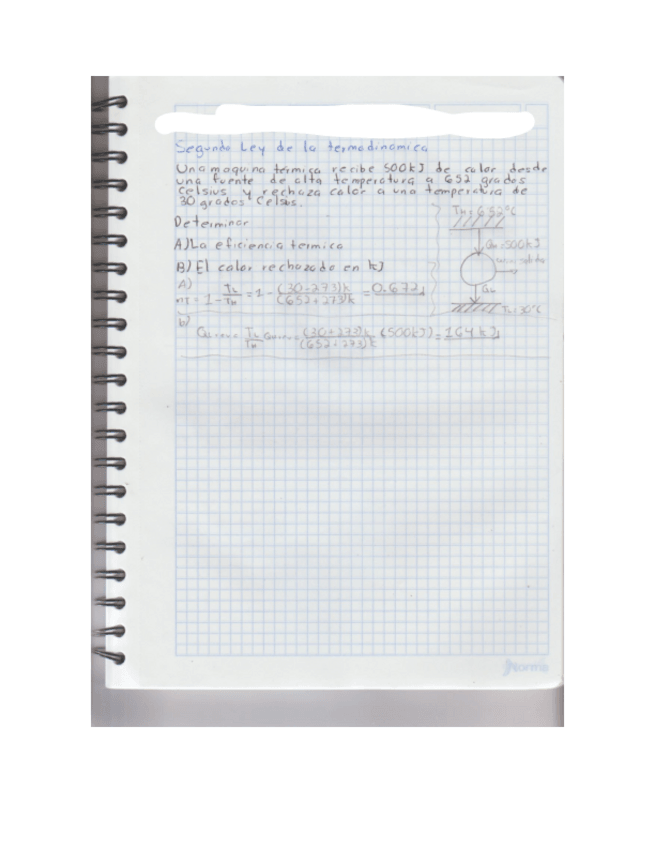 Segunda Ley de la termodinamica
Una maquina termica recibe 500kJ de calor desde
una fuente de alta temperatura a 652 grados
Celsius y rechaza calor a una temperatura de
30 grados Celsius.
Determinar
A) La eficiencia termica
B) El calor rechazado en kJ
TH = 652°C
QH = 500kJ
salida
QL
TL = 30°C
A)
1 - TL/TH = 1 - (30-273)k/(652+273)k = 0.672
b)
TL/TH = (30+273)k/(652+273)k (500kJ) = 164 kJ
Norma